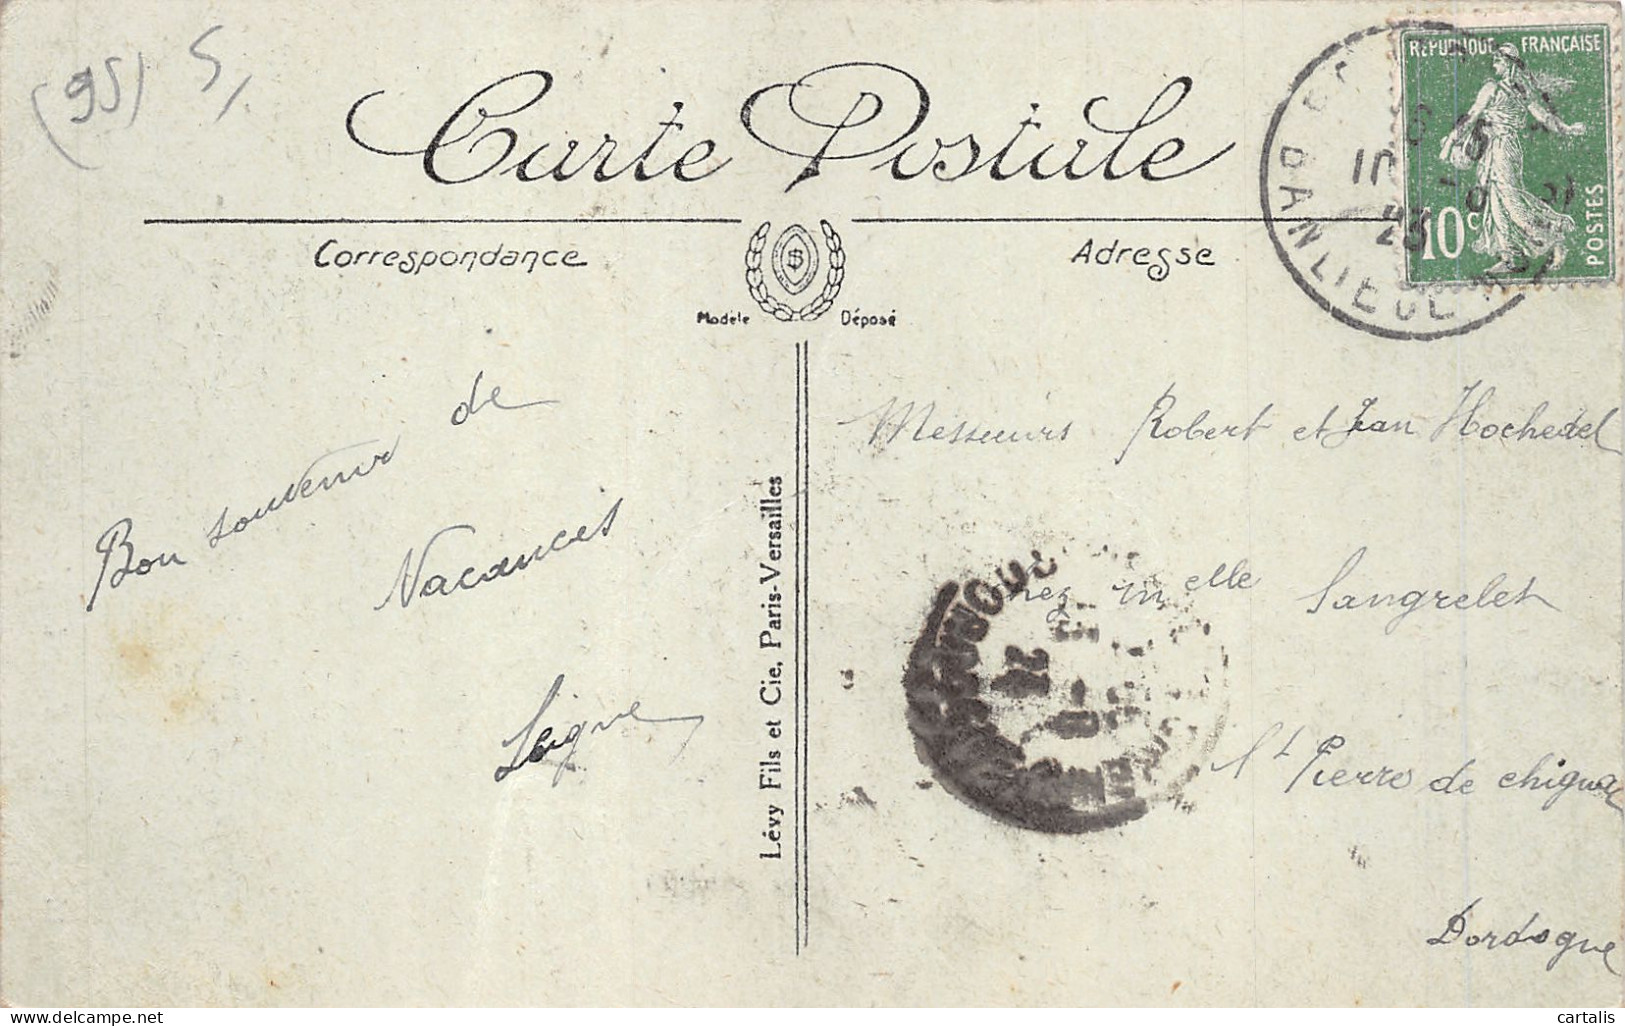 (95) S,
Carte Postale
REPUBLIQUE FRANÇAISE
10c
POSTES
BANLIEUE
Correspondance
Adresse
Modèle Déposé
Bon souvenir de
Vacances
Lévy Fils et Cie, Paris-Versailles
Messieurs Robert et Jean Hochedel
chez Melle Sangrelet
St Pierre de chignac
Dordogne
cartalis